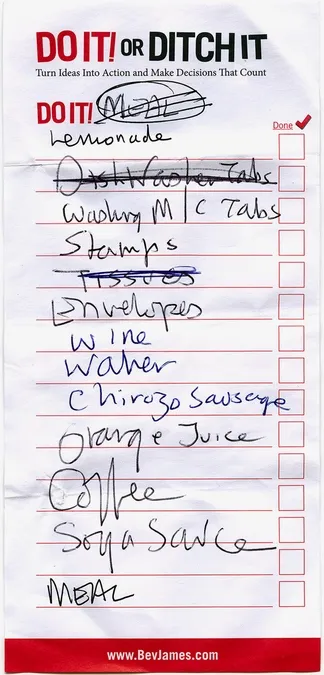 DO IT! OR DITCH IT
Turn Ideas Into Action and Make Decisions That Count
DO IT! MEAL
Done
Lemonade
DishWasher Tabs
Washing M/C Tabs
Stamps
Tissues
Envelopes
Wine
Waher
Chirozo Sausage
Orange Juice
Coffee
Soya Sauce
MEAL
www.BevJames.com